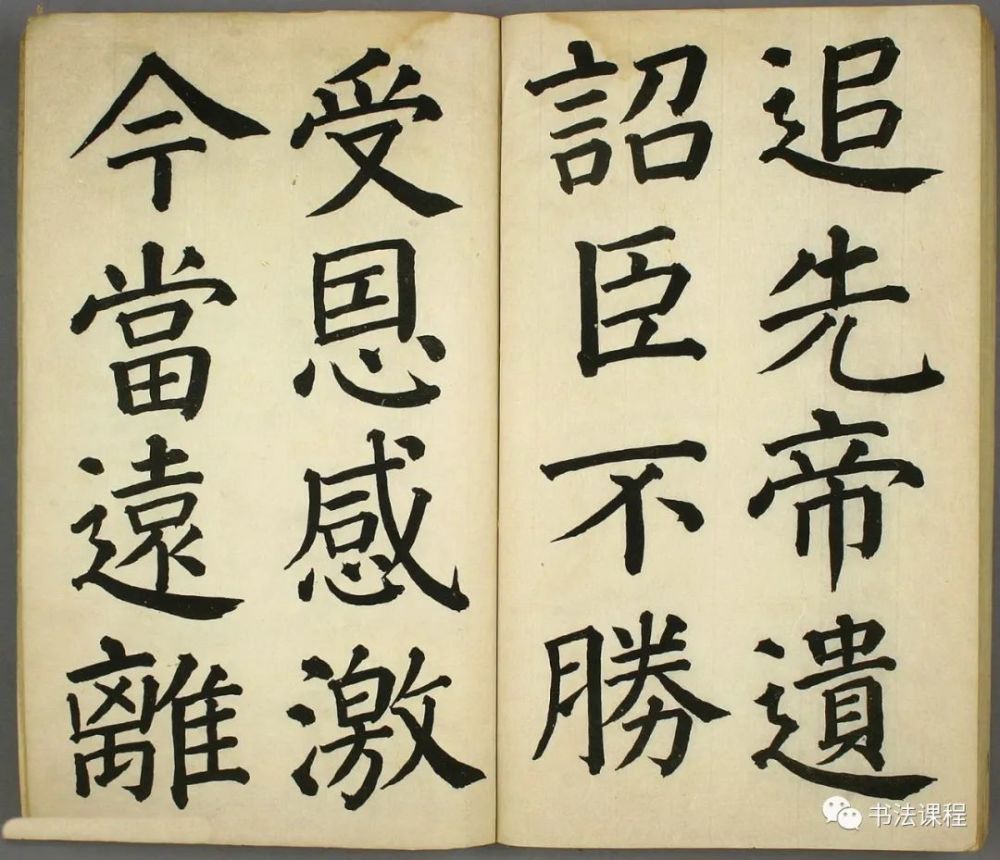 追先帝遺
詔臣不勝
受恩感激
今當遠離
书法课程